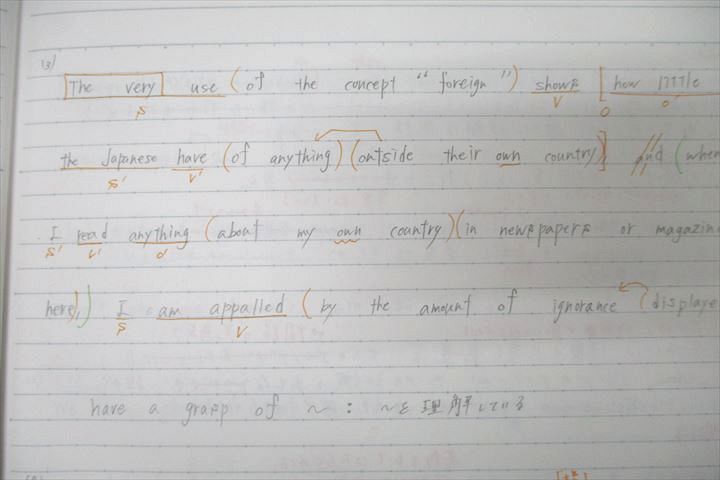 13)
The very use (of the concept "foreign") shows [how little
S V O O'
the Japanese have (of anything) (outside their own country)] and (when
S' V'
I read anything (about my own country) (in newspapers or magazin
S' V' O'
here),) I am appalled (by the amount of ignorance (displaye
S V
have a grasp of ～ : ～を理解している